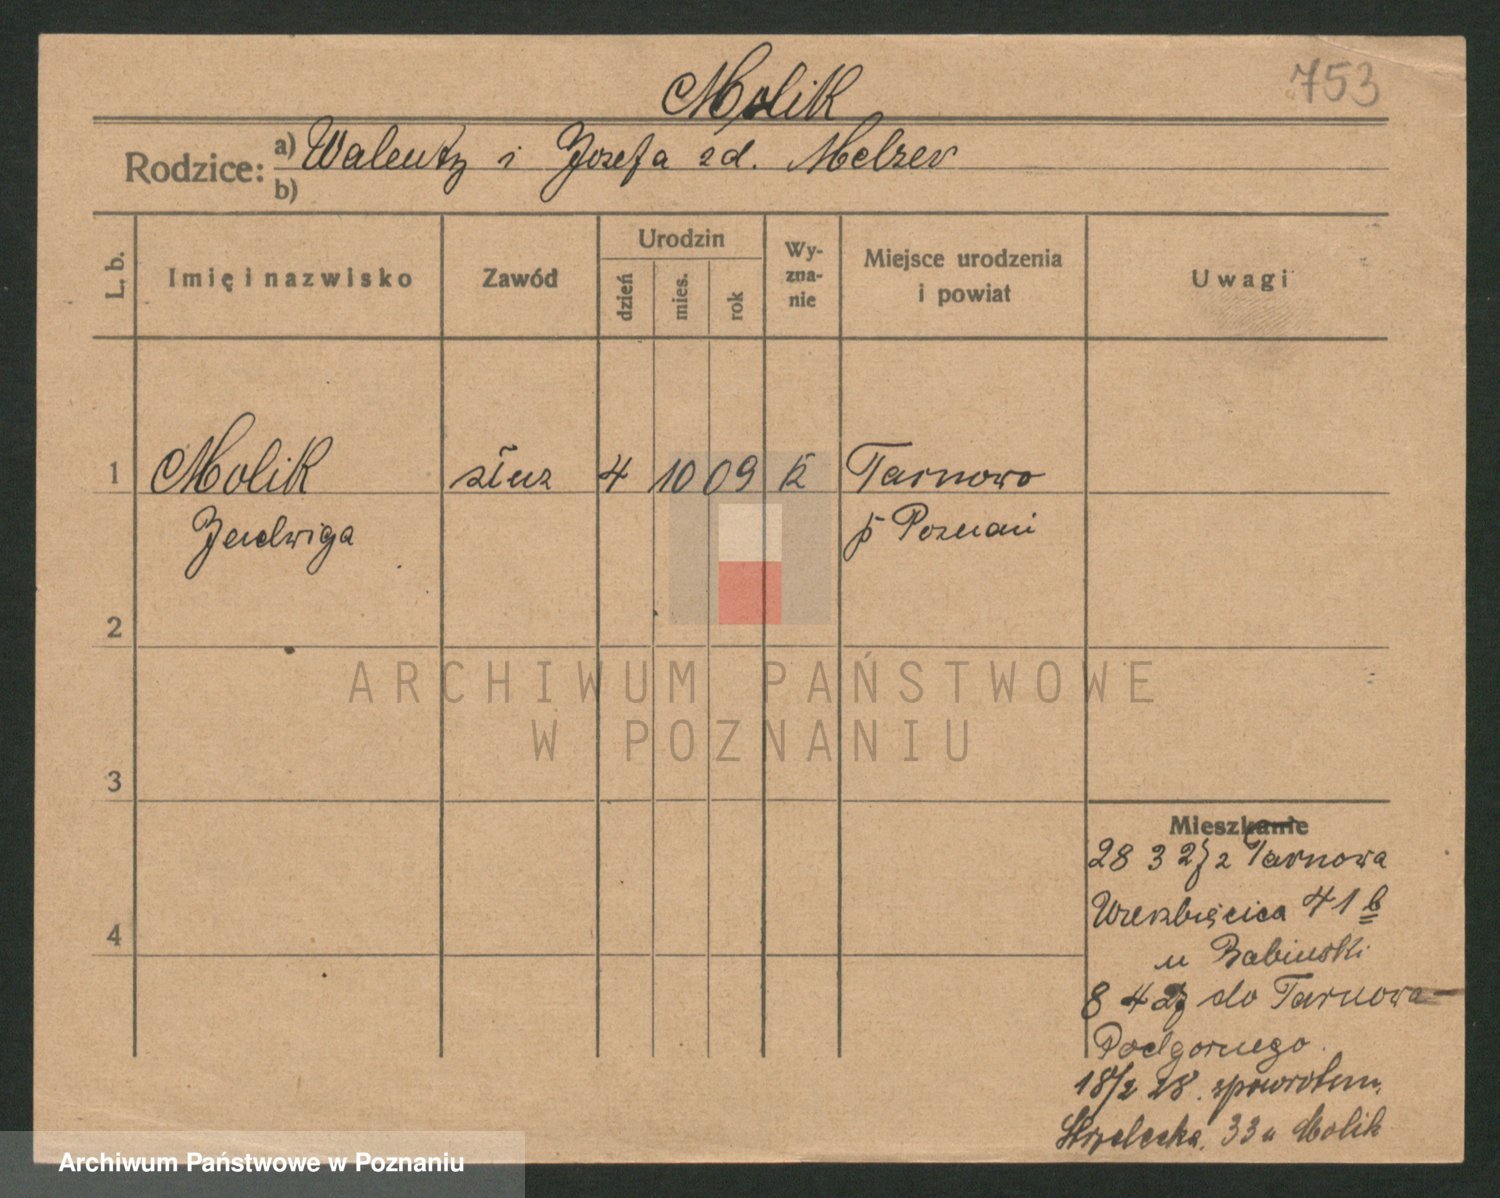 Molik
753
Rodzice: a) Walenty i Józefa zd. Melzer
b)
L. b.
Imię i nazwisko
Zawód
Urodzin
dzień
mies.
rok
Wy-
zna-
nie
Miejsce urodzenia
i powiat
Uwagi
1 Molik służ 4 10 09 k Tarnowo
Jadwiga p Poznań
2
3
4
Mieszkanie
28 3 27 z Tarnowa
41 b
u Babiński
8 4 27 do Tarnowa
Podgornego.
18/2 28. spowrotem.
Strzelecka 33 u Molik
ARCHIWUM PAŃSTWOWE
W POZNANIU
Archiwum Państwowe w Poznaniu